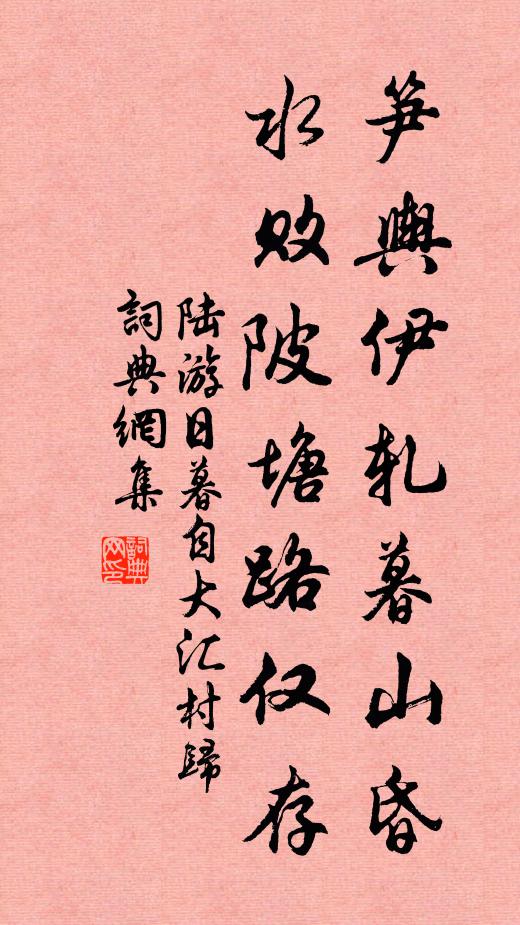 笋輿伊軋暮山昏
水敗陂塘路仅存
陆游日暮自大汇村歸
詞典網集
詞典网印